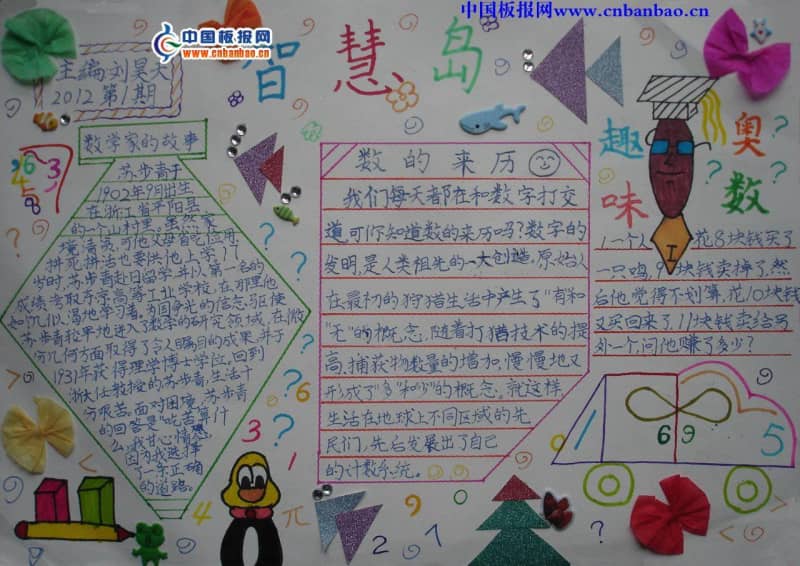 中国板报网www.cnbanbao.cn
中国板报网
www.cnbanbao.cn
智慧岛
主编刘昊天
2012第1期
数学家的故事
苏步青于
1902年9月出生
在浙江省平阳县
的一个山村里。虽然家
境清贫,可他父母省吃俭用,
拼死拼活也要供他上学。17
岁时,苏步青赴日留学,并以第一名的
成绩考取东京高等工业学校,在那里他
如饥似渴地学习着,为国争光的信念,驱使
苏步青较早地进入了数学的研究领域,在微
分几何方面取得了令人瞩目的成果,并于
1931年获得理学博士学位,回到
浙大任教授的苏步青,生活十
分艰苦。面对困境,苏步青
的回答是“吃苦算什
么,我甘心情愿,
因为我选择
了一条正确
的道路。
数的来历
我们每天都在和数字打交
道,可你知道数的来历吗?数字的
发明,是人类祖先的一大创造,原始人
在最初的狩猎生活中产生了“有”和
“无”的概念,随着打猎技术的提
高,捕获物数量的增加,慢慢地又
形成了“多”和“少”的概念。就这样,
生活在地球上不同区域的先
民们,先后发展出了自己
的计数系统。
趣味奥数
1
一个人花8块钱买了
一只鸡,9块钱卖掉了,然
后他觉得不划算,花10块钱
又买回来了,11块钱卖给另
外一个,问他赚了多少?
6 9
5
3
6
1
4
π
2
9